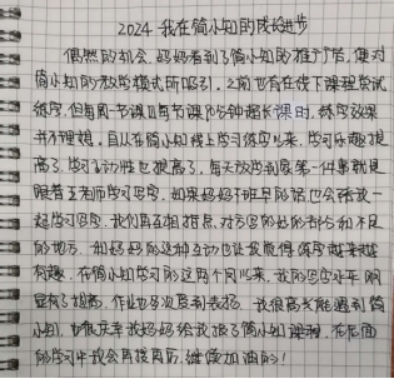 2024 我在简小知的成长进步
偶然的机会,妈妈看到了简小知的推广后,便对
简小知的教学模式所吸引,之前也有在线下课程尝试
练字,但每周一节课且每节课90分钟超长课时,练字效果
并不理想。自从在简小知线上学习练字以来,学习乐趣提
高了,学习主动性也提高了,每天放学到家第一件事就是
跟着王老师学习写字,如果妈妈下班早的话也会陪我一
起学习写字,我们再互相指点,对方写的好的部分和不足
的地方,和妈妈的这种互动也让我觉得练字越来越
有趣,在简小知学习的这两个月以来,我的写字水平明
显有了提高,作业也多次受到表扬,我很高兴能遇到简
小知,也很庆幸我妈妈给我报了简小知课程,在后面
的学习中我会再接再厉,继续加油的!